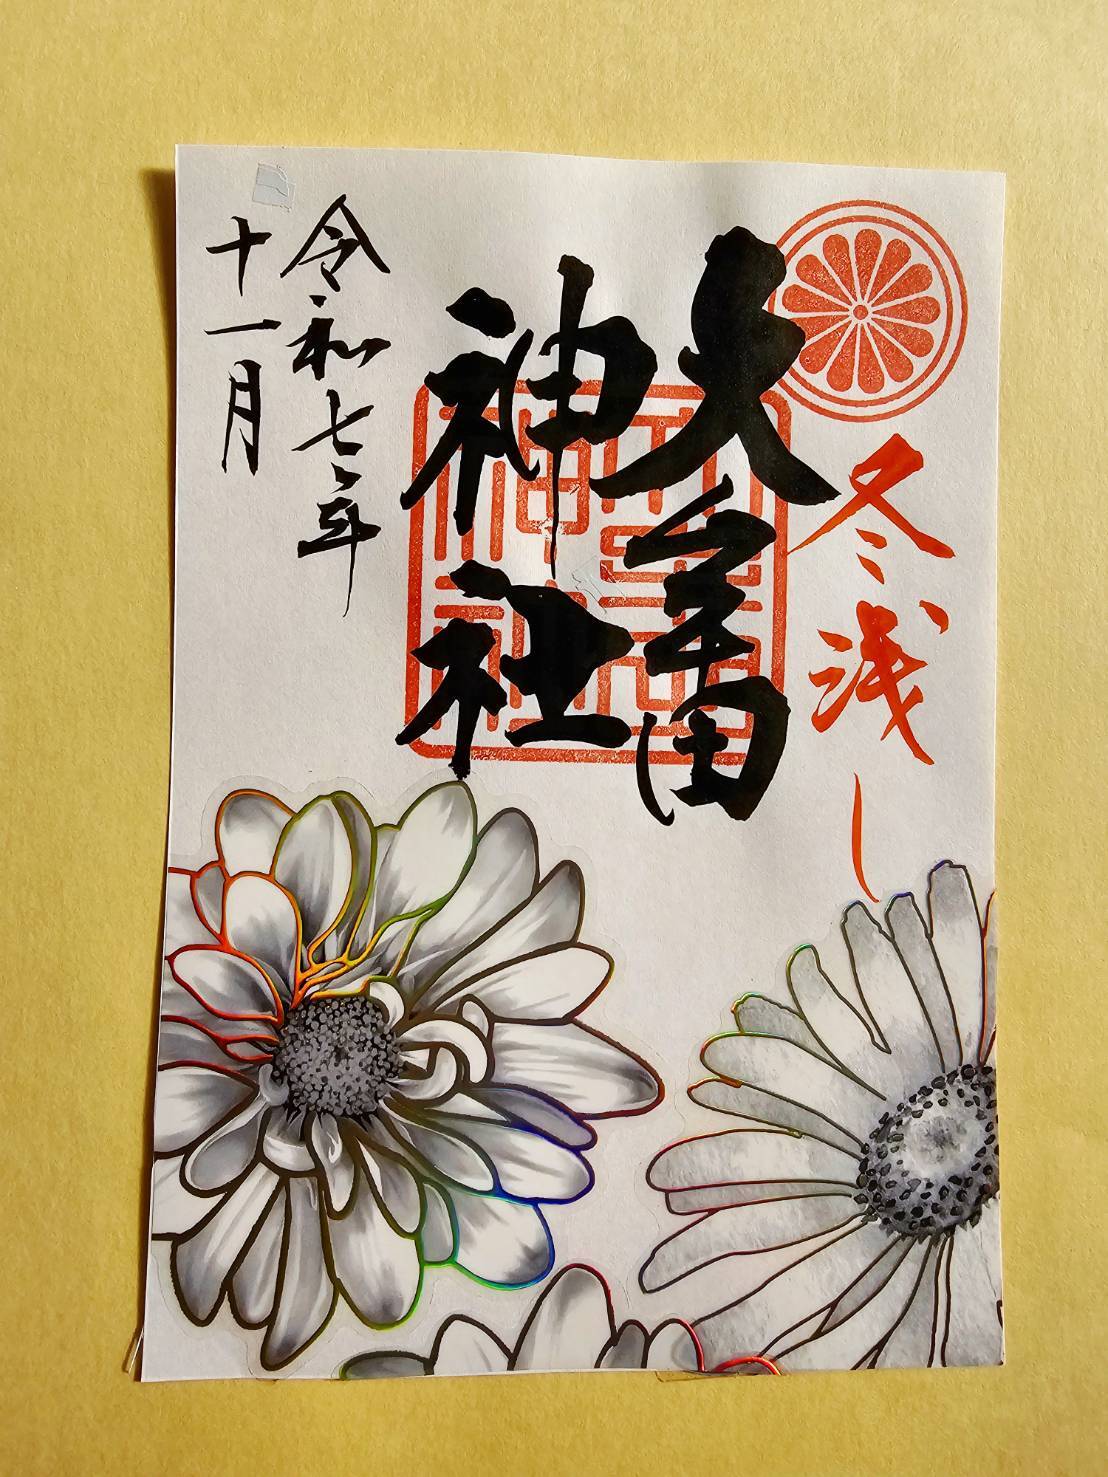 冬浅し
大
神社
令和七年
十一月